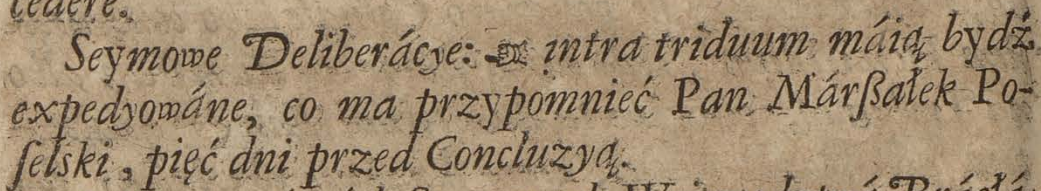 cedere.
Seymowe Deliberácye: intra triduum máią bydź
expedyowáne, co ma przypomnieć Pan Márßałek Po-
ſelski, pięć dni przed Concluzyą.